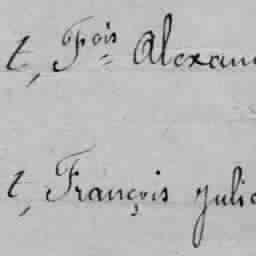 t, Fçois Alexan
t, François Julie